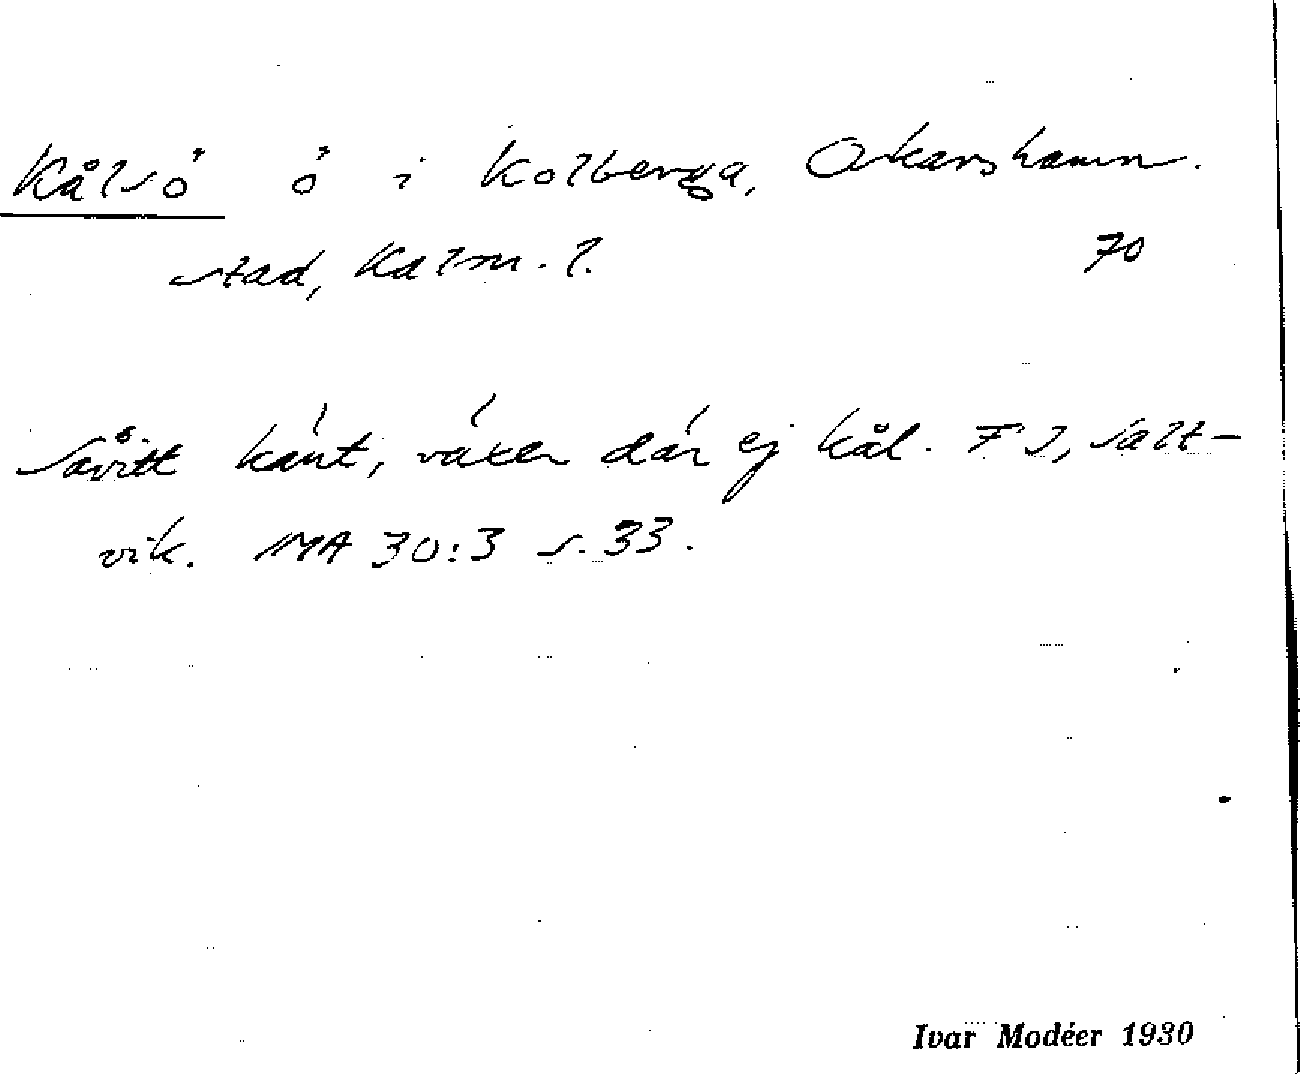 Kålsö ö i Kolberga, Oskarshamn.
stad, Kalm. l. 70
Såvitt känt, växer där ej kål. F J, Salt-
vik. MA 30:3 s. 33.
Ivar Modéer 1930